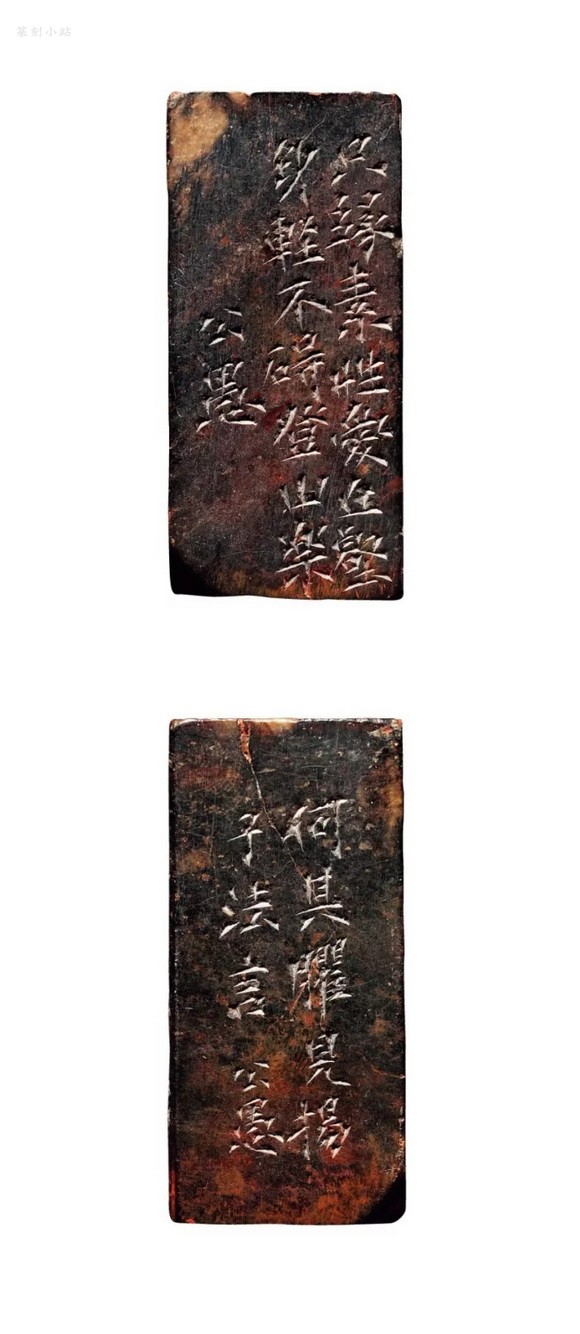 篆刻小站
只緣素性愛丘壑
軽不碍登山楽
公愚
何其臞見揚
子法言 公愚